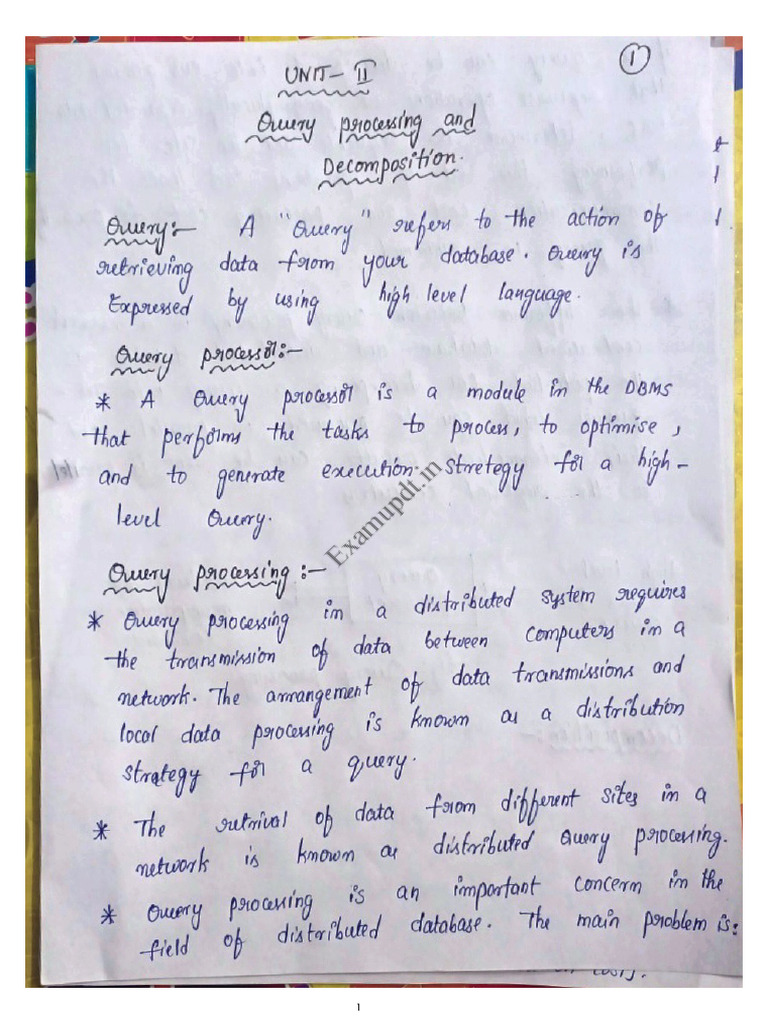 1
UNIT-II
Query processing and
Decomposition.
Query:- A "Query" refers to the action of
retrieving data from your database. Query is
Expressed by using high level language.
Query processor:-
* A Query processor is a module in the DBMS
that performs the tasks to process, to optimise,
and to generate execution stretegy for a high-
level Query.
Examupdt.in
Query processing:-
* Query processing in a distributed system requires
the transmission of data between computers in a
network. The arrangement of data transmissions and
local data processing is known as a distribution
strategy for a query.
* The retrival of data from different sites in a
network is known as distributed Query processing.
* Query processing is an important concern in the
field of distributed database. The main problem is:
1